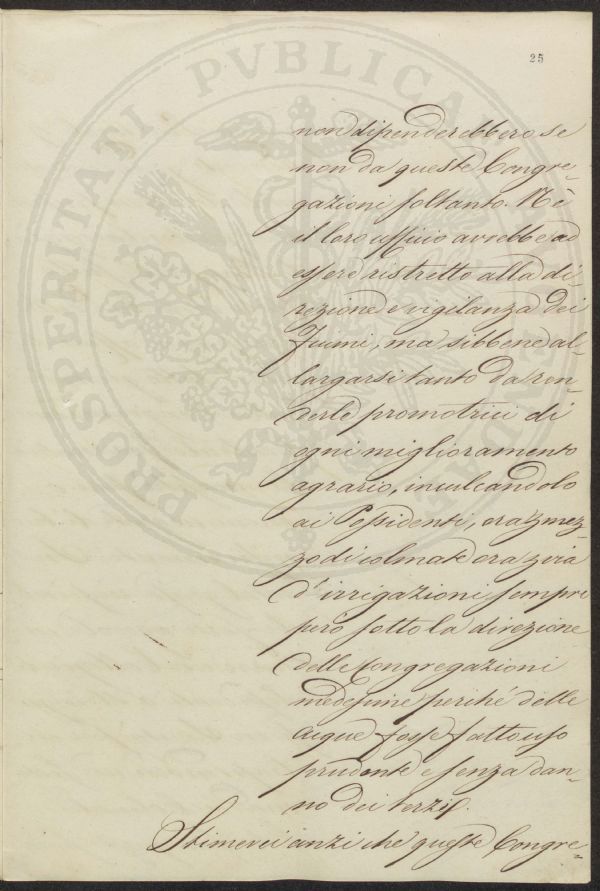 25
PROSPERITATI PVBLICAE
non dipenderebbero se
non da queste Congre-
gazioni soltanto. Nè
il loro ufficio avrebbe ad
essere ristretto alla di-
rezione e vigilanza dei
Fiumi, ma sibbene al-
largarsi tanto da ren-
derle promotrici di
ogni miglioramento
agrario, inculcandolo
ai Possidenti, ora p mez-
zo di colmate ora p via
d'irrigazioni sempre
però sotto la direzione
delle Congregazioni
medesime perché delle
acque fosse fatto uso
prudente e senza dan-
no dei terzi.
Stimerei anzi che queste Congre-